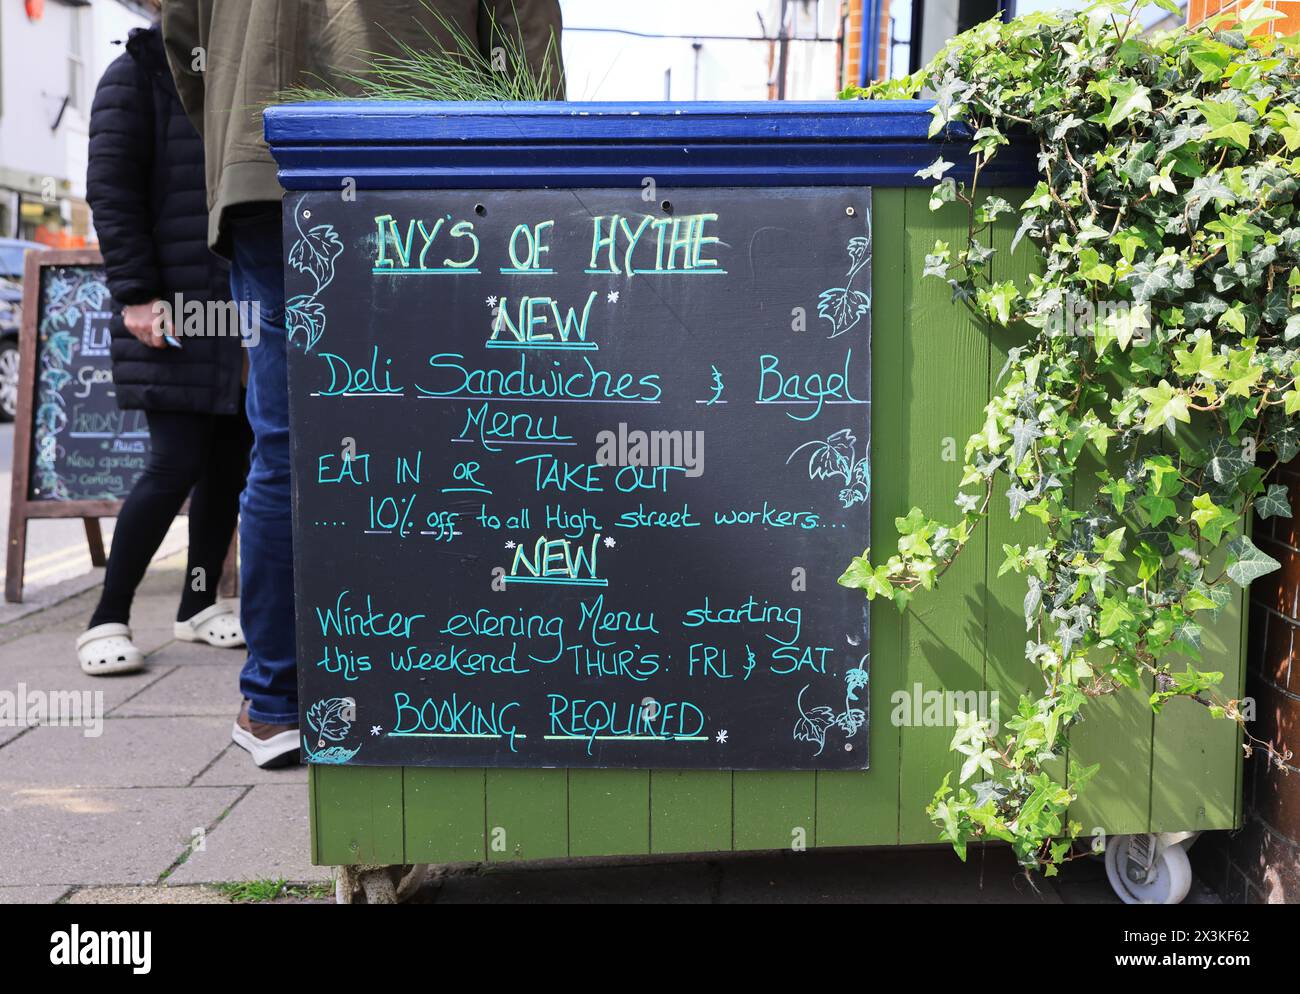 IVY'S OF HYTHE
*NEW*
Deli Sandwiches & Bagel
Menu
EAT IN OR TAKE OUT
.... 10% off to all High street workers....
*NEW*
Winter evening Menu starting
this weekend THUR'S: FRI & SAT.
*BOOKING REQUIRED*
FRIDAY
New garden
Coming
alamy
Image ID: 2X3KF62
www.alamy.com